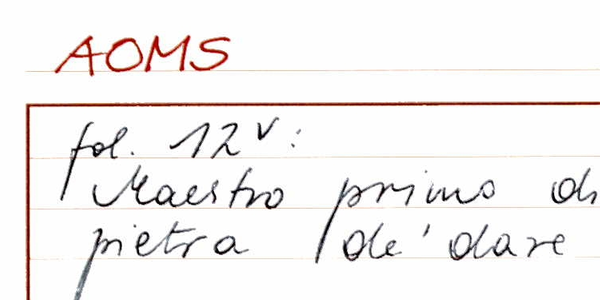 AOMS
fol. 12v:
Maestro primo di
pietra / de' dare